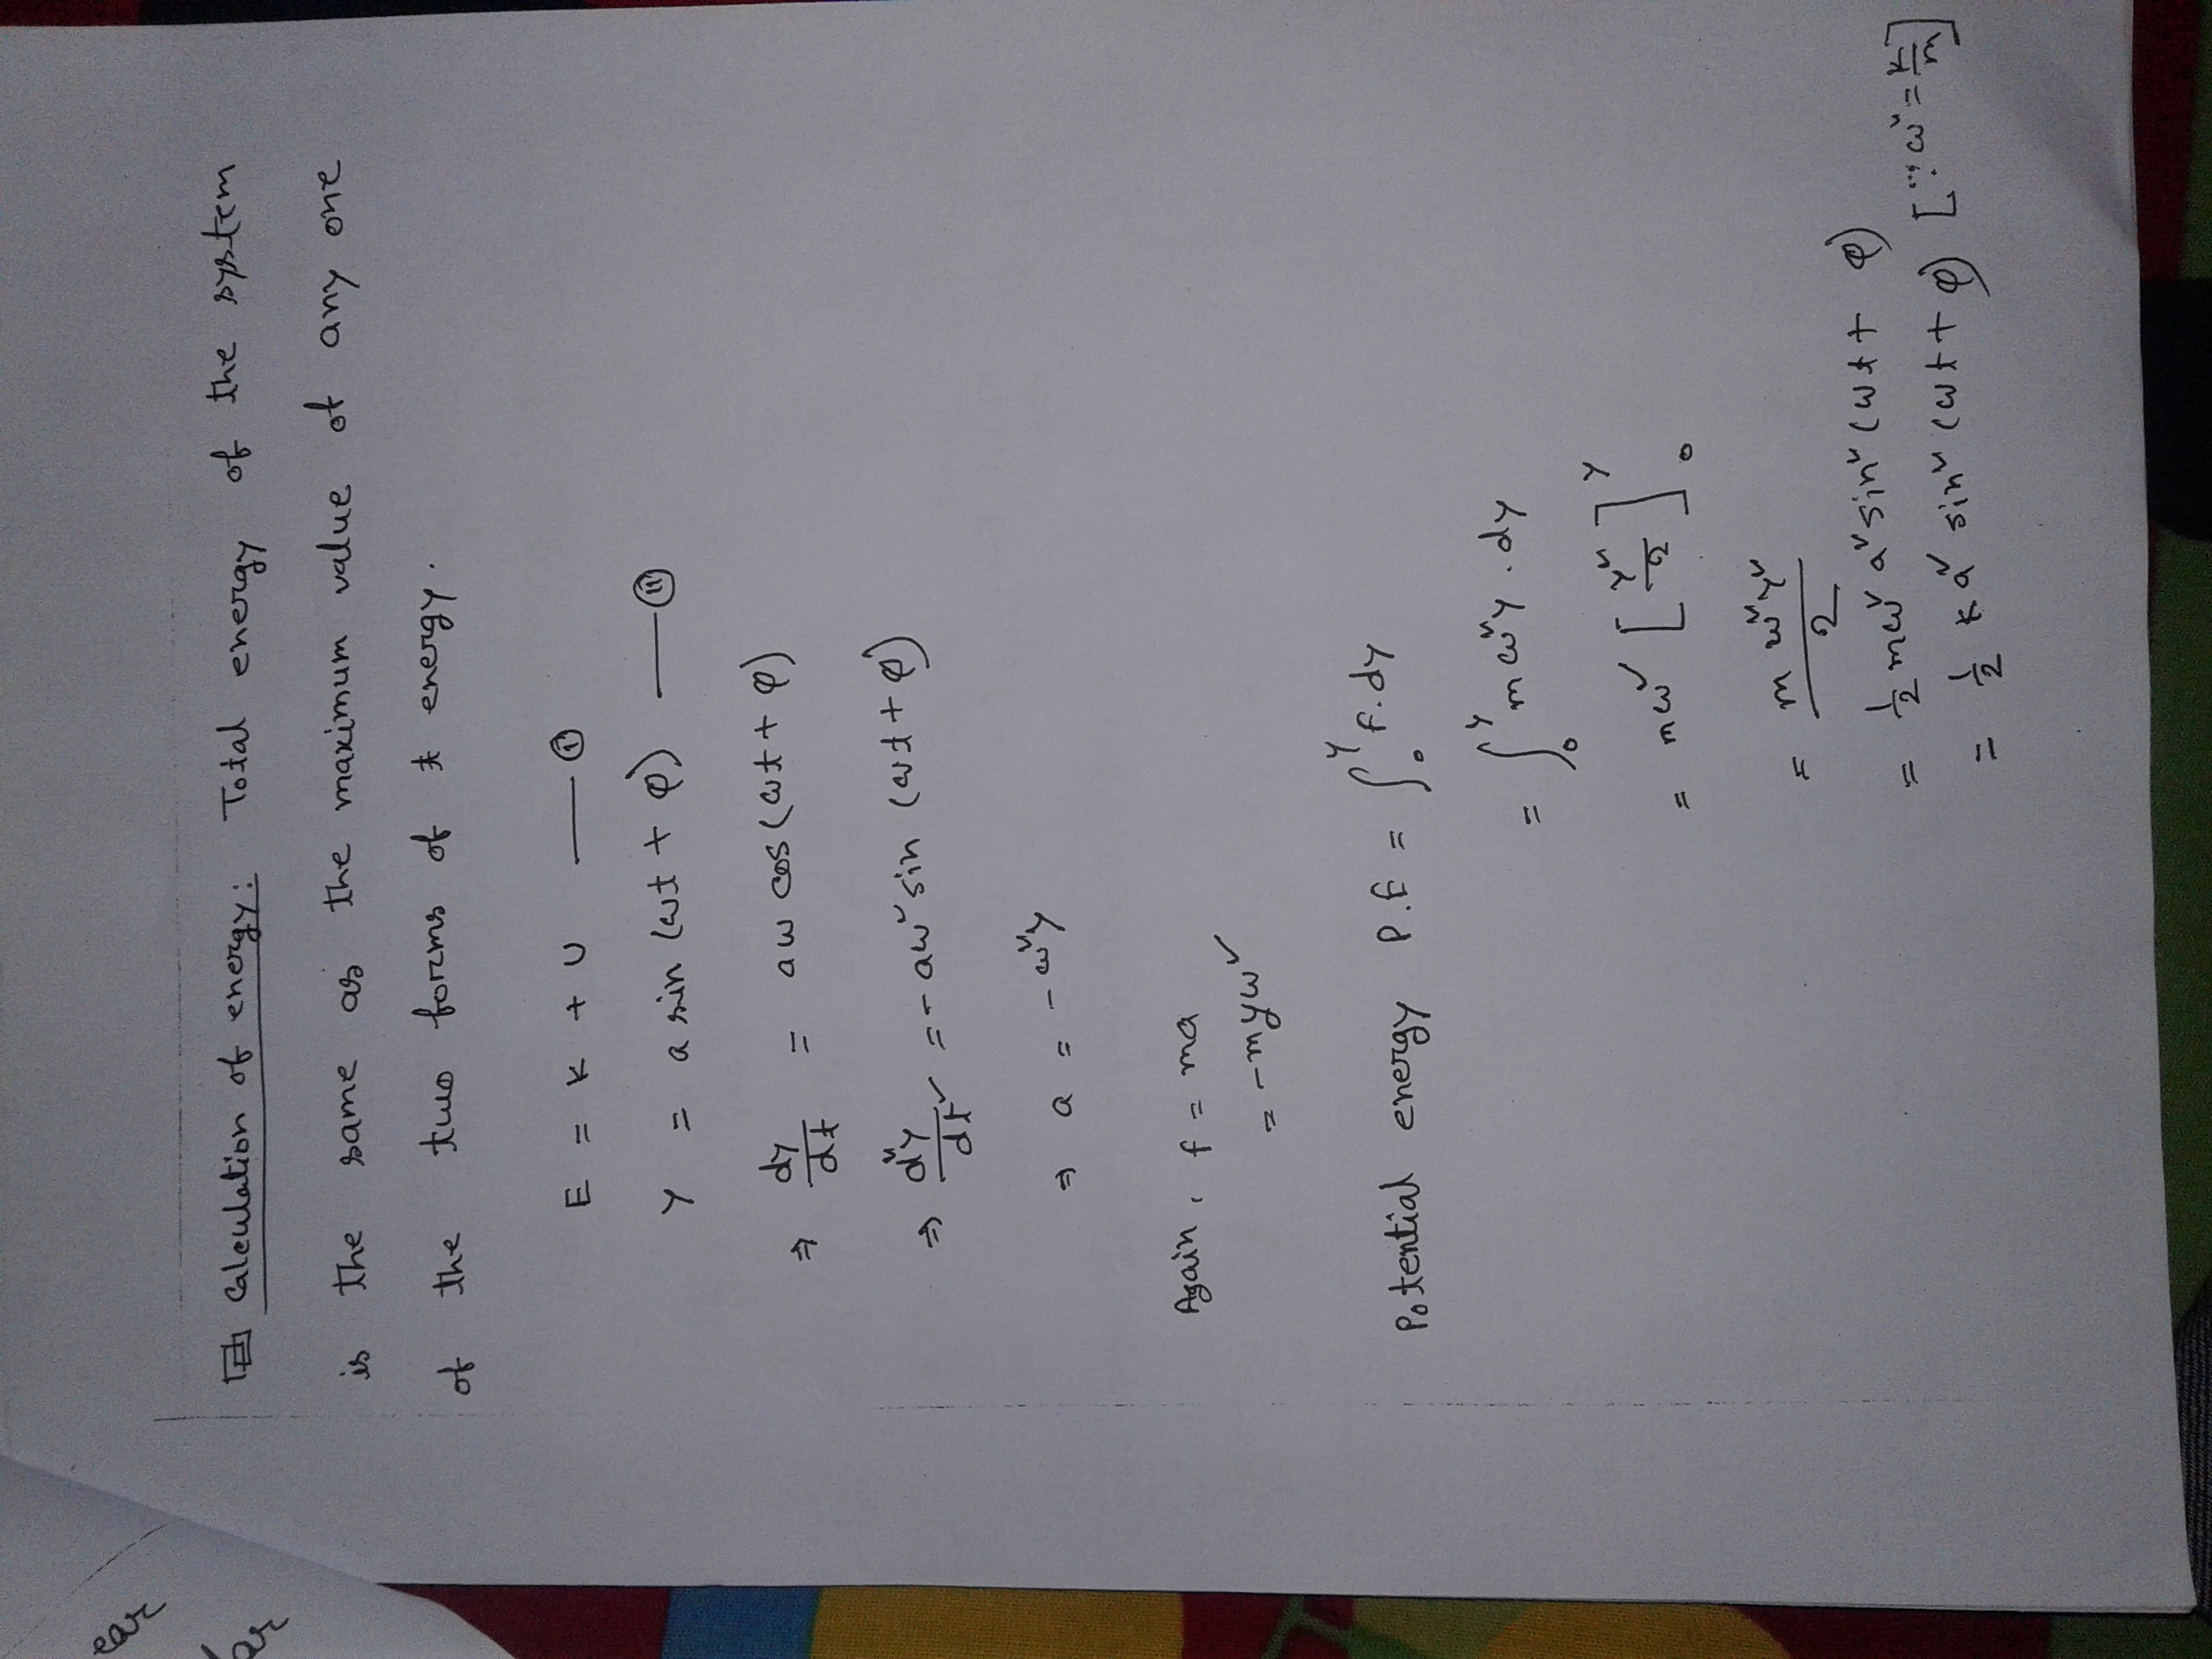 ear
ar
Calculation of energy: Total energy of the system
is the same as the maximum value of any one
of the two forms of energy.
E = K + U —— (i)
Y = a sin (ωt + φ) —— (ii)
⇒ dy/dt = aω cos(ωt + φ)
⇒ d²y/dt² = -aω² sin (ωt + φ)
⇒ a = -ω²y
Again, f = ma
= -myω²
Potential energy P.E = ∫₀^Y F.dy
= ∫₀^Y mω²y.dy
= mω² [y²/2]₀^Y
= mω²y²/2
= 1/2 mω² a² sin² (ωt + φ)
= 1/2 K a² sin² (ωt + φ) [∵ ω² = K/m]